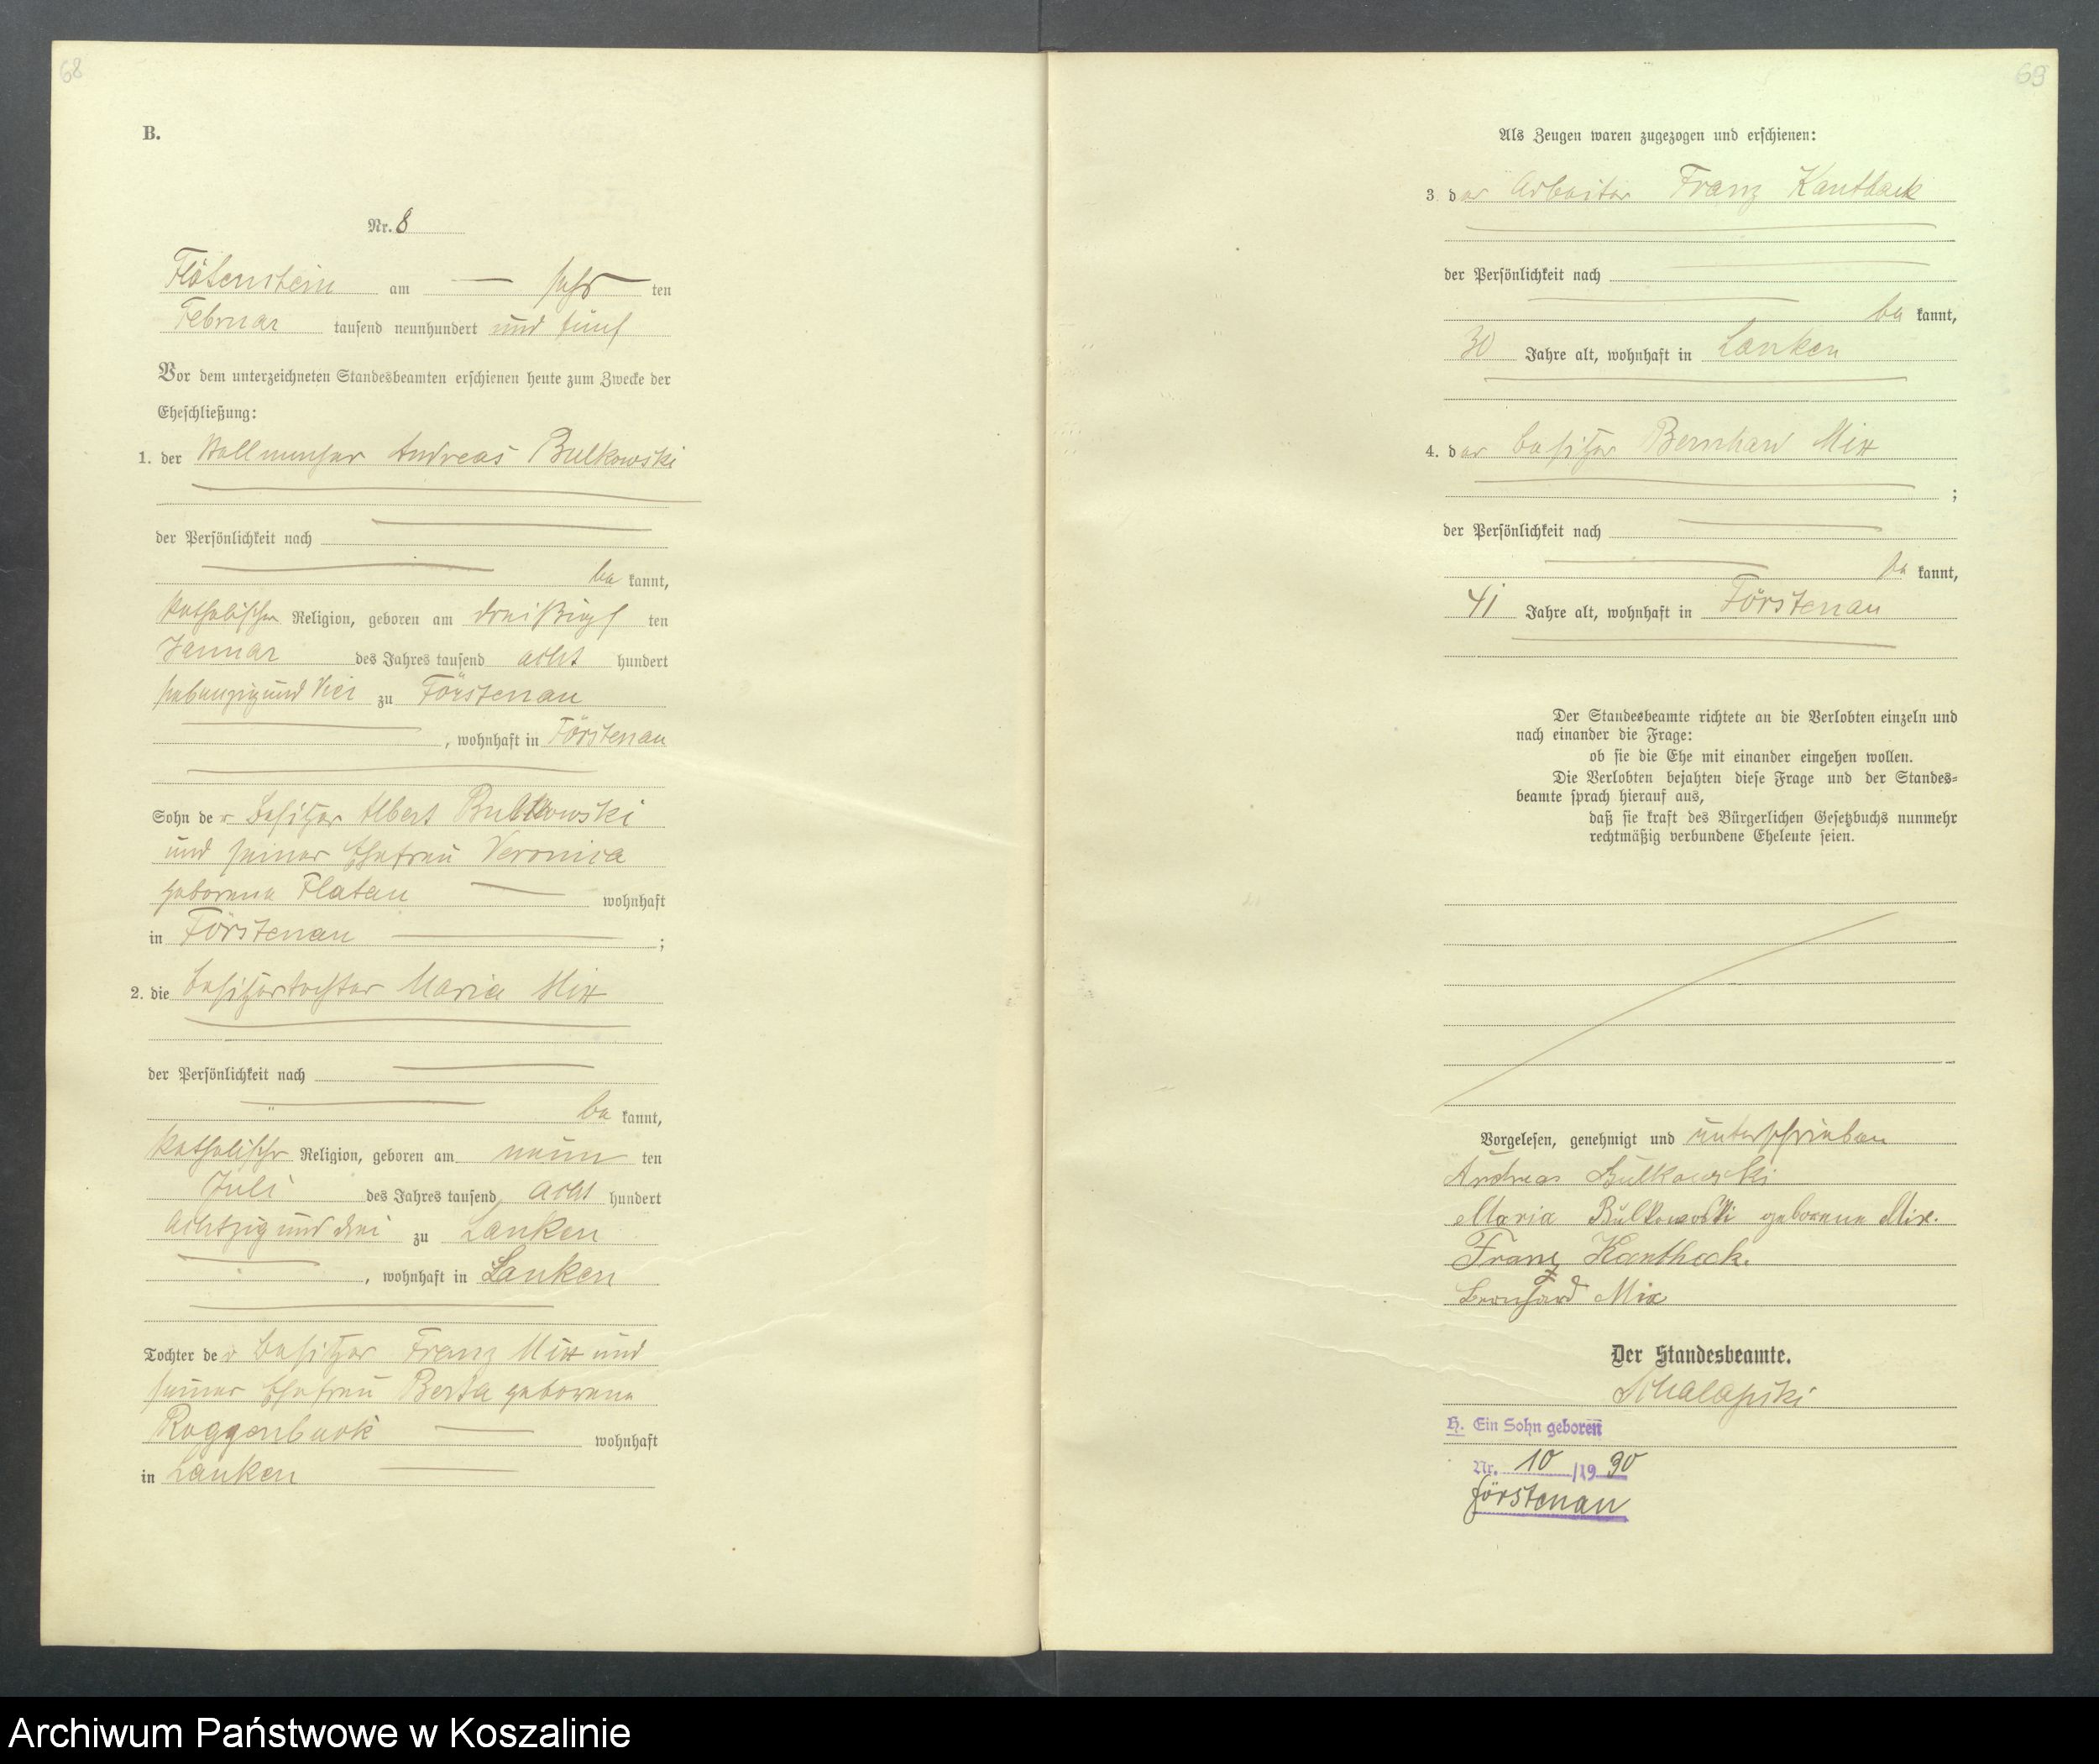 68
B.
Nr. 8
Flötenstein am sechs ten
Februar tausend neunhundert und fünf
Vor dem unterzeichneten Standesbeamten erschienen heute zum Zwecke der
Eheschließung:
1. der Andreas Bulkowski
der Persönlichkeit nach
be kannt,
katholischer Religion, geboren am dreißigs ten
Januar des Jahres tausend acht hundert
siebenzig und vier zu Förstenau
, wohnhaft in Förstenau
Sohn der Besitzer Albert Bulkowski
und seiner Ehefrau Veronica
geborene Flatau wohnhaft
in Förstenau ;
2. die Besitzertochter Maria Mix
der Persönlichkeit nach
be kannt,
katholischer Religion, geboren am neun ten
Juli des Jahres tausend acht hundert
achtzig und drei zu Lanken
, wohnhaft in Lanken
Tochter der Besitzer Franz Mix und
seiner Ehefrau Berta geborene
Roggenbuck wohnhaft
in Lanken
69
Als Zeugen waren zugezogen und erschienen:
3. der Arbeiter Franz Kanthack
der Persönlichkeit nach
be kannt,
30 Jahre alt, wohnhaft in Lanken
4. der Besitzer Bernhard Mix
;
der Persönlichkeit nach
be kannt,
41 Jahre alt, wohnhaft in Förstenau
Der Standesbeamte richtete an die Verlobten einzeln und
nach einander die Frage:
ob sie die Ehe mit einander eingehen wollen.
Die Verlobten bejahten diese Frage und der Standes=
beamte sprach hierauf aus,
daß sie kraft des Bürgerlichen Gesetzbuchs nunmehr
rechtmäßig verbundene Eheleute seien.
Vorgelesen, genehmigt und unterschrieben
Andreas Bulkowski
Maria Bulkowski geborene Mix.
Franz Kanthack.
Bernhard Mix
Der Standesbeamte.
H. Ein Sohn geboren
Nr. 10 /19 30
Förstenau
Archiwum Państwowe w Koszalinie